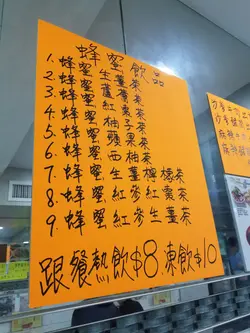 蜂蜜飲品
1. 蜂蜜生薑茶
2. 蜂蜜蘆薈茶
3. 蜂蜜紅棗茶
4. 蜂蜜柚子茶
5. 蜂蜜蘋果茶
6. 蜂蜜西柚茶
7. 蜂蜜生薑檸檬茶
8. 蜂蜜紅參紅棗茶
9. 蜂蜜紅參生薑茶
跟餐熱飲$8凍飲$10